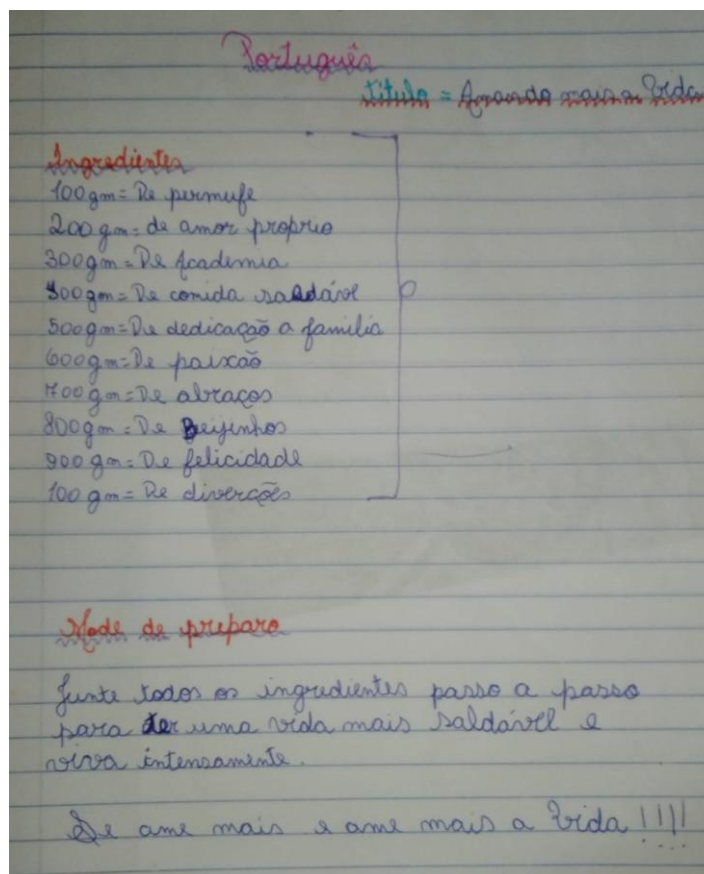 Português
titulo = Amando mais a Vida
Ingredientes
100gm= De permufe
200gm= de amor proprio
300gm= De Academia
400gm= De comida saldável
500gm= De dedicação a familia
600gm= De paixão
700gm= De abraços
800gm= De Beijinhos
900gm= De felicidade
100gm= De diverções
Mode de preparo
Junte todos os ingredientes passo a passo
para ter uma vida mais saldável e
viva intensamente.
Se ame mais e ame mais a Vida !!!!